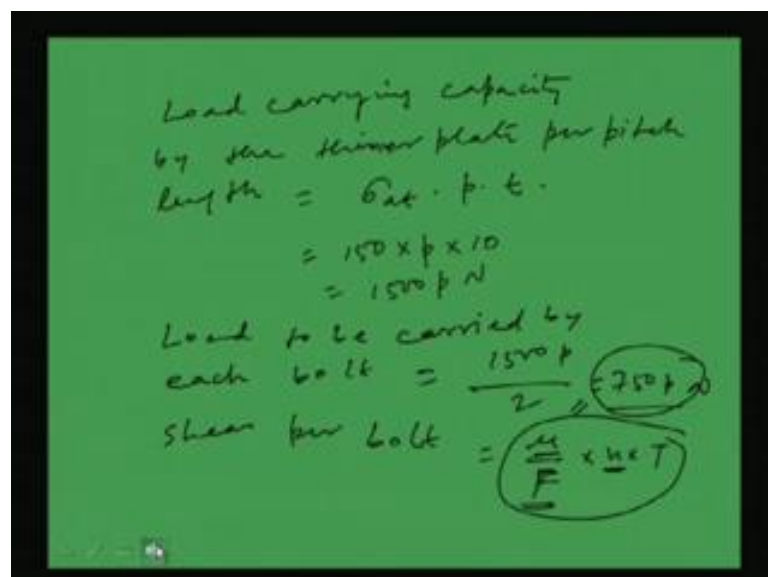 Load carrying capacity
by the thinner plate per pitch
length = σat . p . t .
= 150 x p x 10
= 1500 p N
Load to be carried by
each bolt = 1500 p / 2 = 750 p N
Shear per bolt = μ / F x n x T